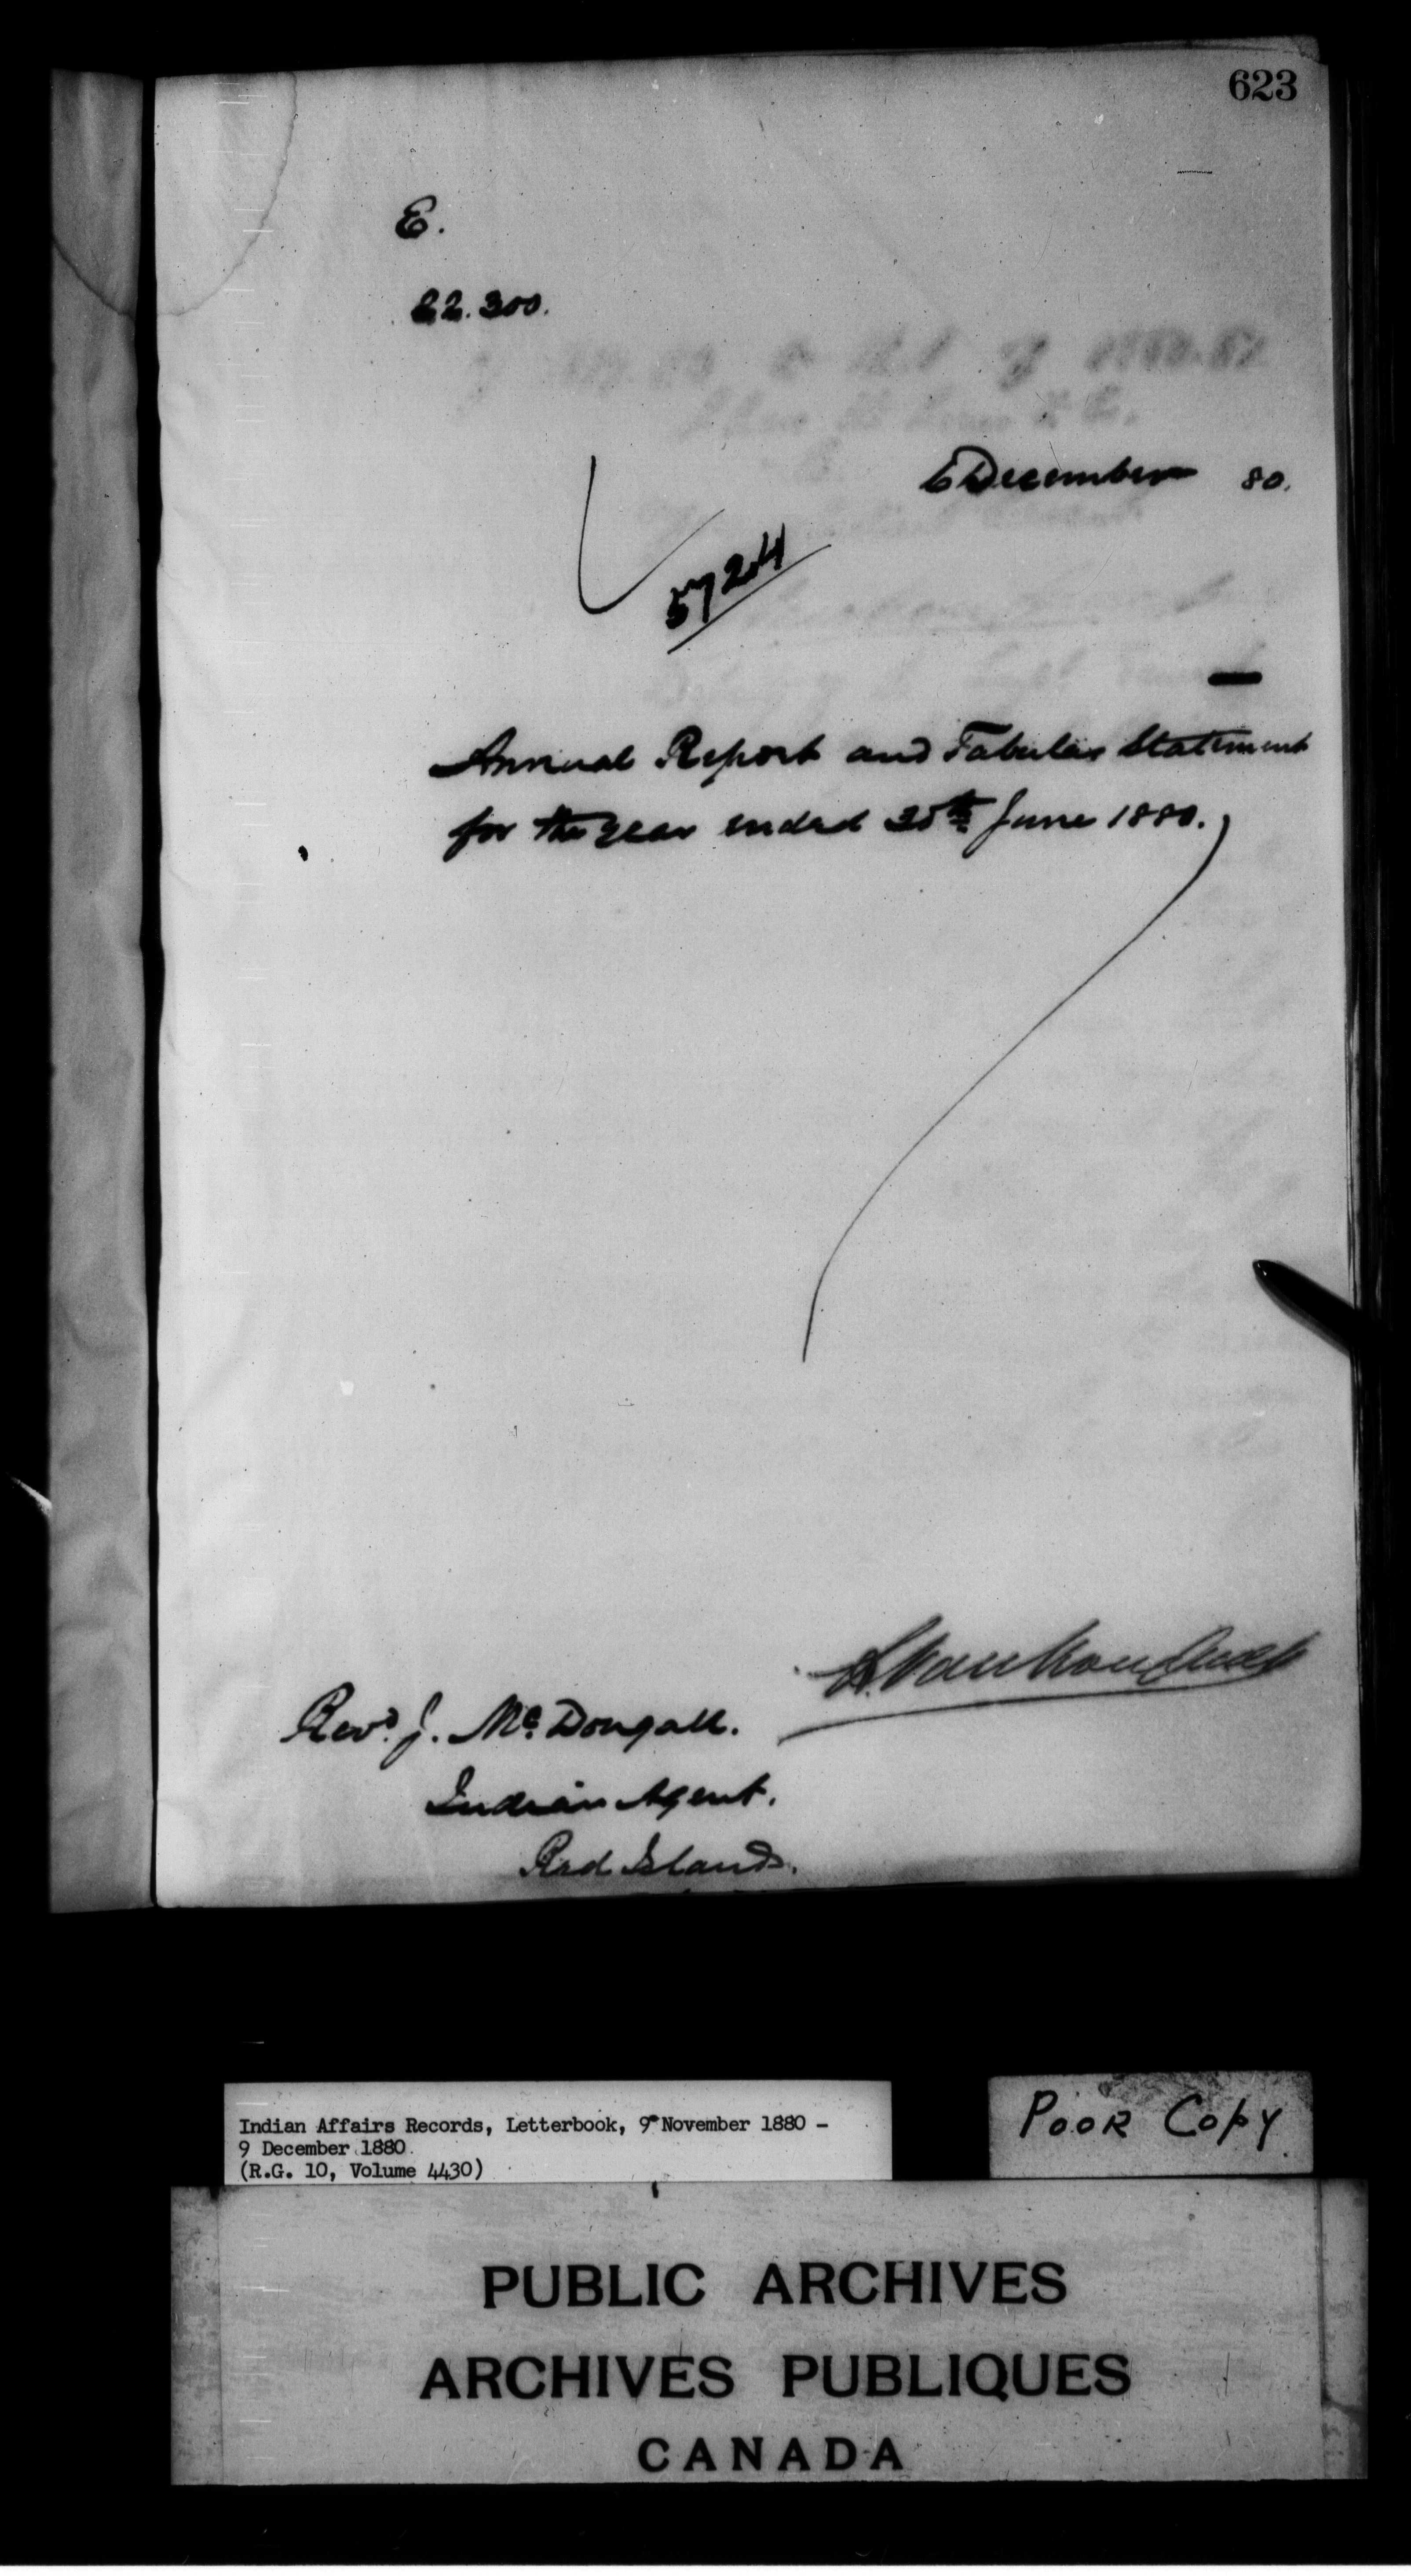 623
E.
22.300.
6 December 80.
57204
Annual Report and Tabular Statement
for the year ended 30th June 1880.
L. Vankoughnet
Revd. J. McDougall.
Indian Agent.
Red Islands.
Indian Affairs Records, Letterbook, 9 November 1880 -
9 December 1880
(R.G. 10, Volume 4430)
POOR COPY
PUBLIC ARCHIVES
ARCHIVES PUBLIQUES
CANADA